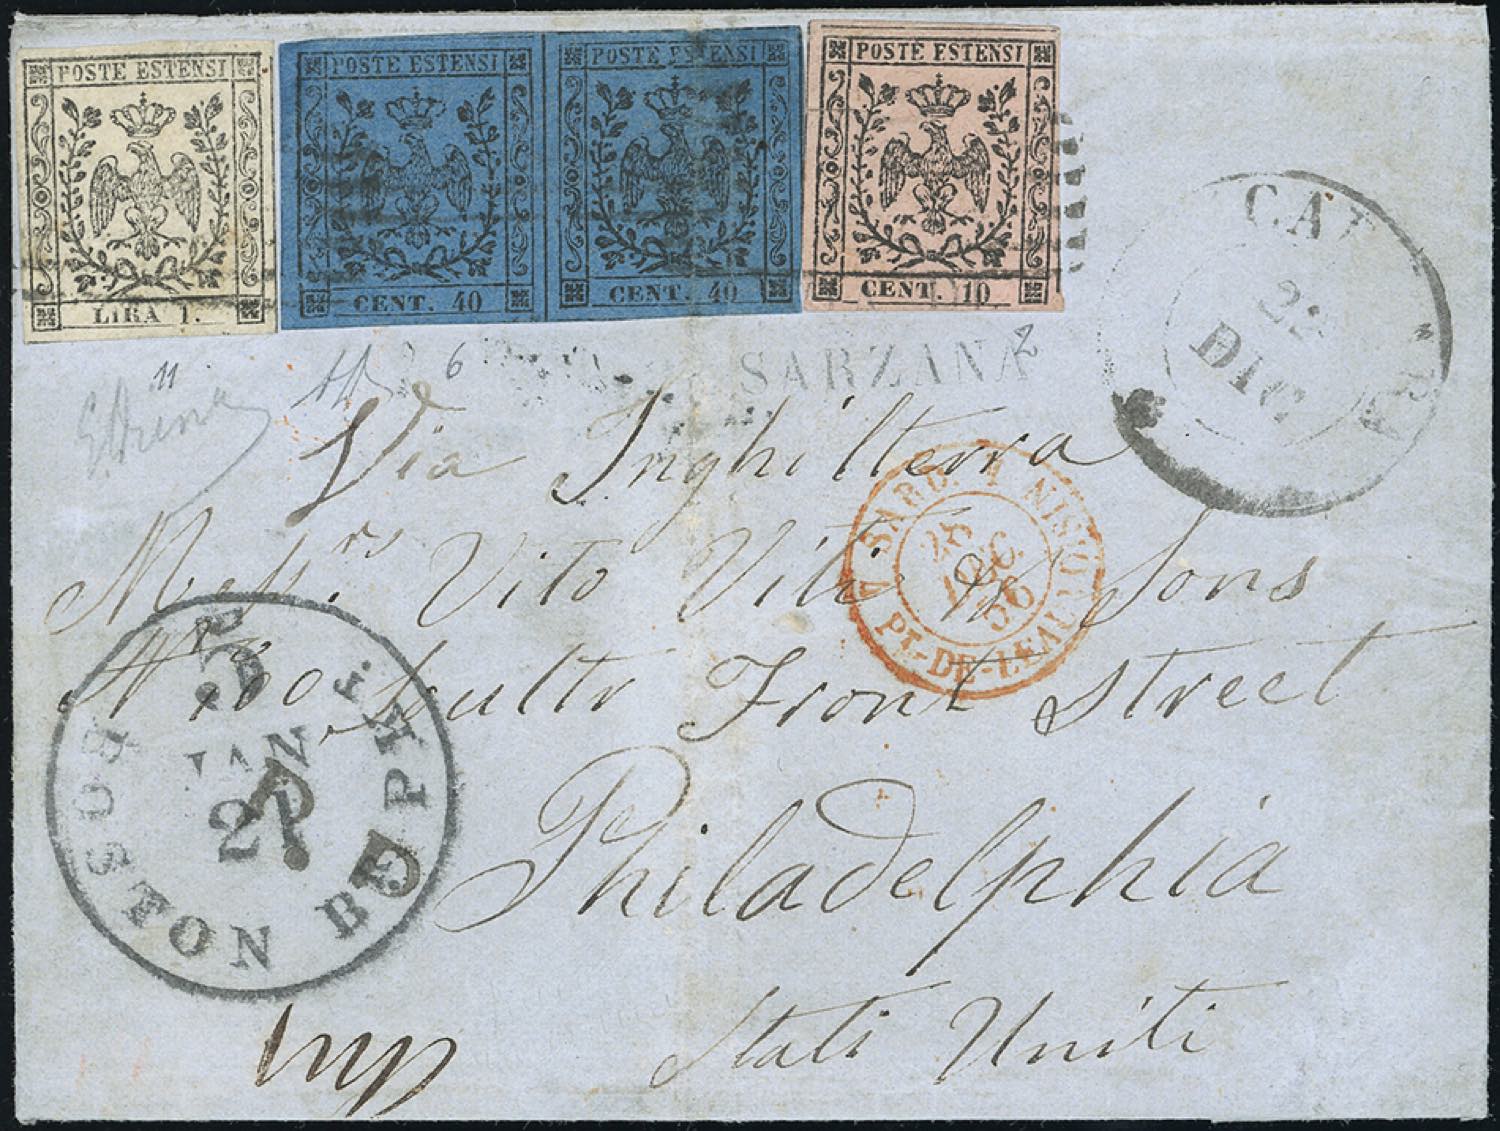 POSTE ESTENSI
LIRA 1.
POSTE ESTENSI
CENT. 40
POSTE ESTENSI
CENT. 40
POSTE ESTENSI
CENT. 10
22
DIC
11
6
2
SARZANA
Via Inghilterra
Mess.rs Vito Viti & Sons
South Front Street
Philadelphia
Stati Uniti
SARD. PT-DE-BEAUVOISIN
28
DEC.
56
BOSTON BR. PKT.
JAN
21
5